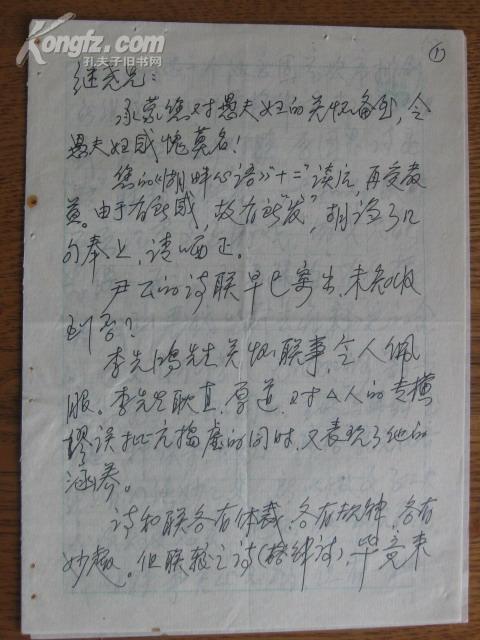 Kongfz.com
孔夫子旧书网
①
继尧兄：
承蒙您对愚夫妇的关怀备至，令
愚夫妇感愧莫名！
您的《湖畔心语》“十二”读后，再受教
益。由于有所感，故有所“发”，胡诌了几
句奉上，请哂正。
尹云的诗联早已寄出，未知收
到否？
李先鸿先生关怀联事，令人佩
服。李先生耿直，厚道，对个人的
谬误批亢捣虚的同时，又表现了他的
涵养。
诗和联各有体裁，各有规律，各有
妙趣。但联较之诗（格律诗），毕竟来